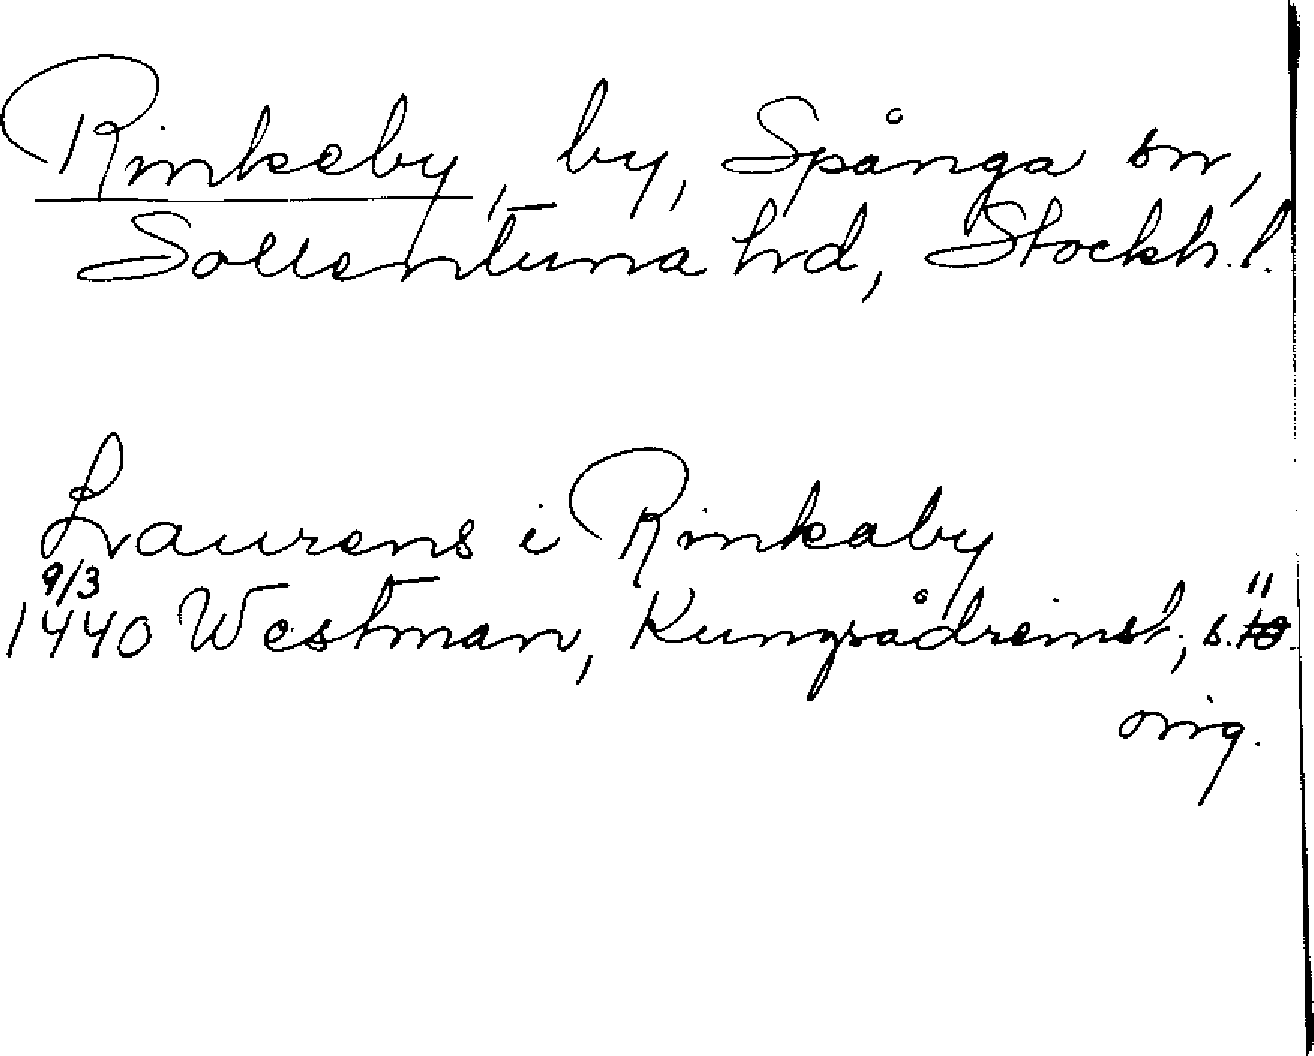 Rinkeby, by, Spånga sn,
Sollentuna hd, Stockh. l.
Laurens i Rinkaby
9/3
1440 Westman, Kungsådreinst, s. 11
orig.